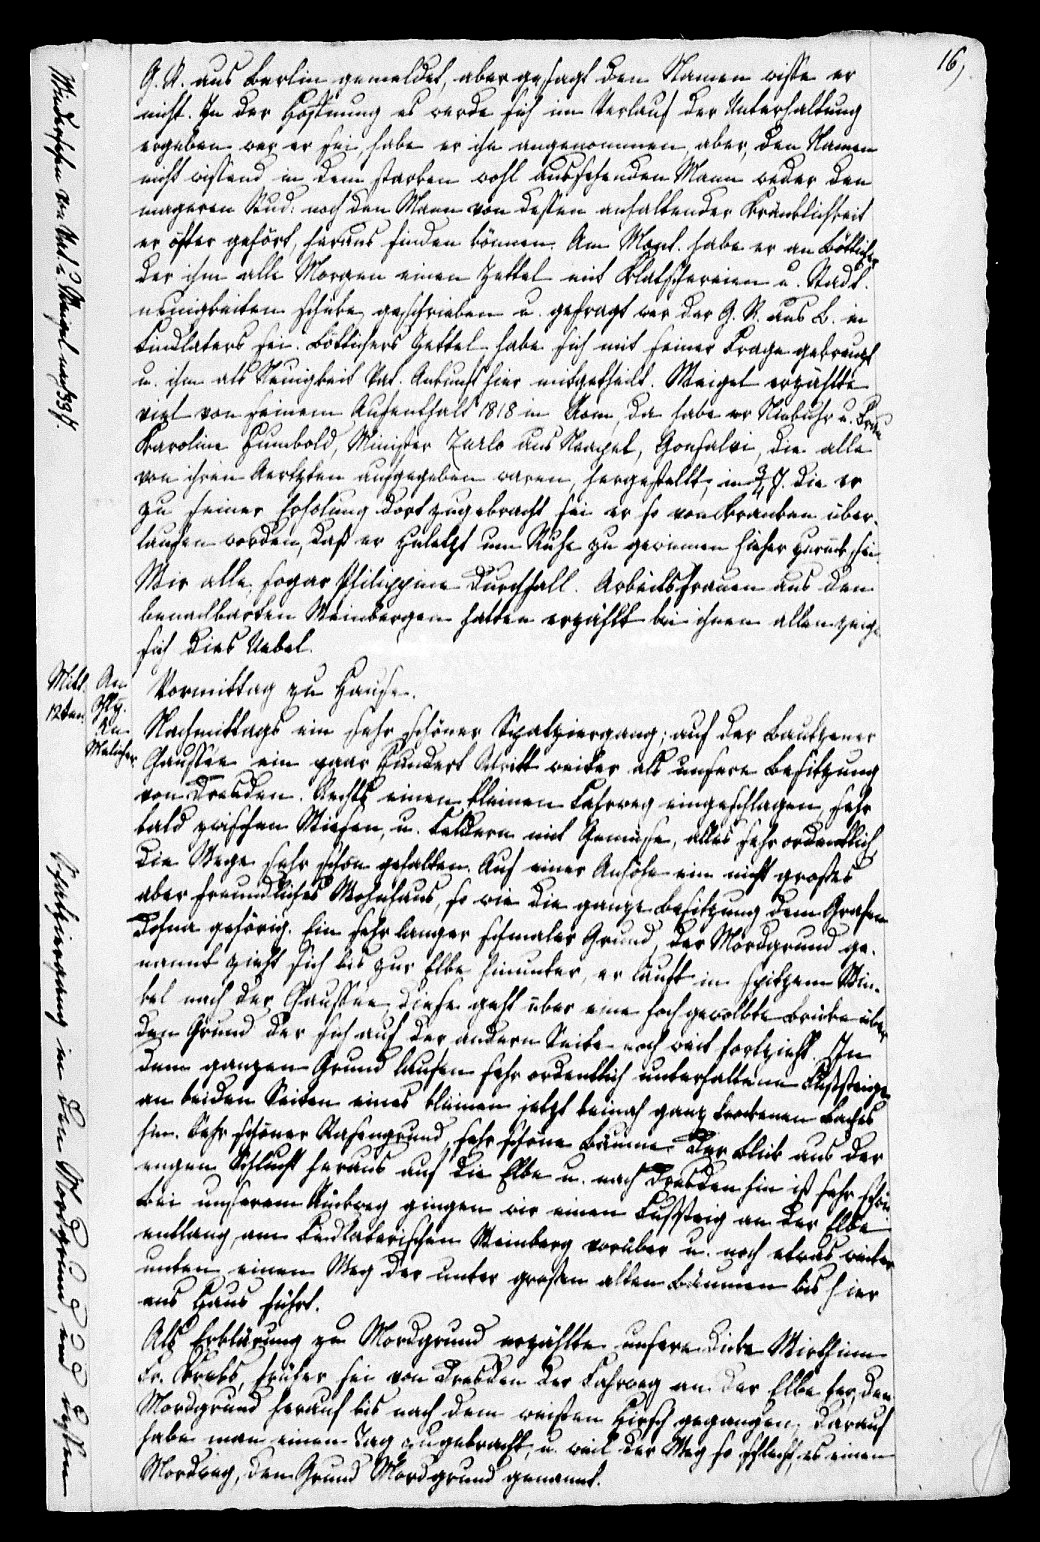 16,
G. R. aus Berlin gemeldet, aber gesagt den Namen wisse er
nicht. In der Hoffnung es werde sich im Verlauf der Unterhaltung
ergeben wer er sei, habe er ihn angenommen, aber, den Namen
nicht wissend in dem starken wohl aussehenden Mann weder den
mageren Stud: noch den Mann von dessen anhaltender Kränklichkeit
er öfter gehört, heraus finden können. Am Mont. habe er an Böttiger
der ihm alle Morgen einen Zettel mit Klatschereien u. Stadt-
neuigkeiten schicke geschrieben u. gefragt wer der G. R. aus B. in
Findlaters sei. Böttichers Zettel habe sich mit seiner Frage gekreuzt
u. ihm als Neuigkeit Pat. Ankunft hier mitgetheilt. Weigel erzählte
viel von seinem Aufenthalt 1818 in Rom, da habe er Niebuhr u. Frau
Karoline Humbold, Minister Zurlo aus Neapel, Gonsalvi, die alle
von ihren Aertzten aufgegeben waren, hergestellt, in 3/4 J. die er
zu seiner Erholung dort zugebracht sei er so von Kranken über-
laufen worden, daß er zuletzt um Ruhe zu gewinnen hieher zurück sei.
Wir alle, sogar Philippine Durchfall. Arbeitsfrauen aus den
benachbarten Weinbergen hatten erzählt bei ihnen allen zeige
sich dies Uebel.
Wiedersehn von Pat. u. Weigel nach 33 J.
Mitt. An
12ten
An
Vormittag zu Hause.
Nachmittags ein sehr schöner Spatziergang; auf der Bautzener
Chaussee ein paar hundert Schritt weiter als unsere Besitzung
von Dresden. Rechts einen kleinen Fahrweg eingeschlagen, sehr
bald zwischen Wiesen, u. Feldern mit Gemüse, alles sehr ordentlich
die Wege sehr schön gehalten. Auf einer Anhöhe ein nicht großes
aber freundliches Wohnhaus, so wie die ganze Besitzung dem Grafen
Dohna gehörig. Ein sehr langer schmaler Grund, der Mordgrund ge-
nannt zieht sich bis zur Elbe hinunter, er läuft in spitzem Win-
kel nach der Chaussee, diese geht über eine hoch gewölbte Brücke über
den Grund der sich auf der andern Seite noch weit fortzieht. In
dem ganzen Grund laufen sehr ordentlich unterhaltene Fußsteige
an beiden Seiten eines kleinen jetzt beinah ganz trockenen Baches
hin. Sehr schöner Rasengrund, sehr schöne Bäume. Der Blick aus der
engen Schlucht heraus auf die Elbe u. nach Dresden hin ist sehr schön
Bei unserem Rückweg gingen wir einen Fußsteig an der Elbe
entlang, am Findlaterischen Weinberg vorüber u. noch etwas weiter
unten einen Weg der unter großen alten Bäumen bis hier
ans Haus führt.
Als Erklärung zu Mordgrund erzählte unsere dicke Wirthinn
Fr. Krebs, früher sei von Dresden der Fahrweg an der Elbe her, den
Mordgrund herauf bis nach dem weißen Hirsch gegangen; darauf
habe man einen Tag zugebracht, u. weil der Weg so schlecht, es einen
Mordweg, den Grund Mordgrund genannt.
Spatziergang in den Mordgrund, und dessen